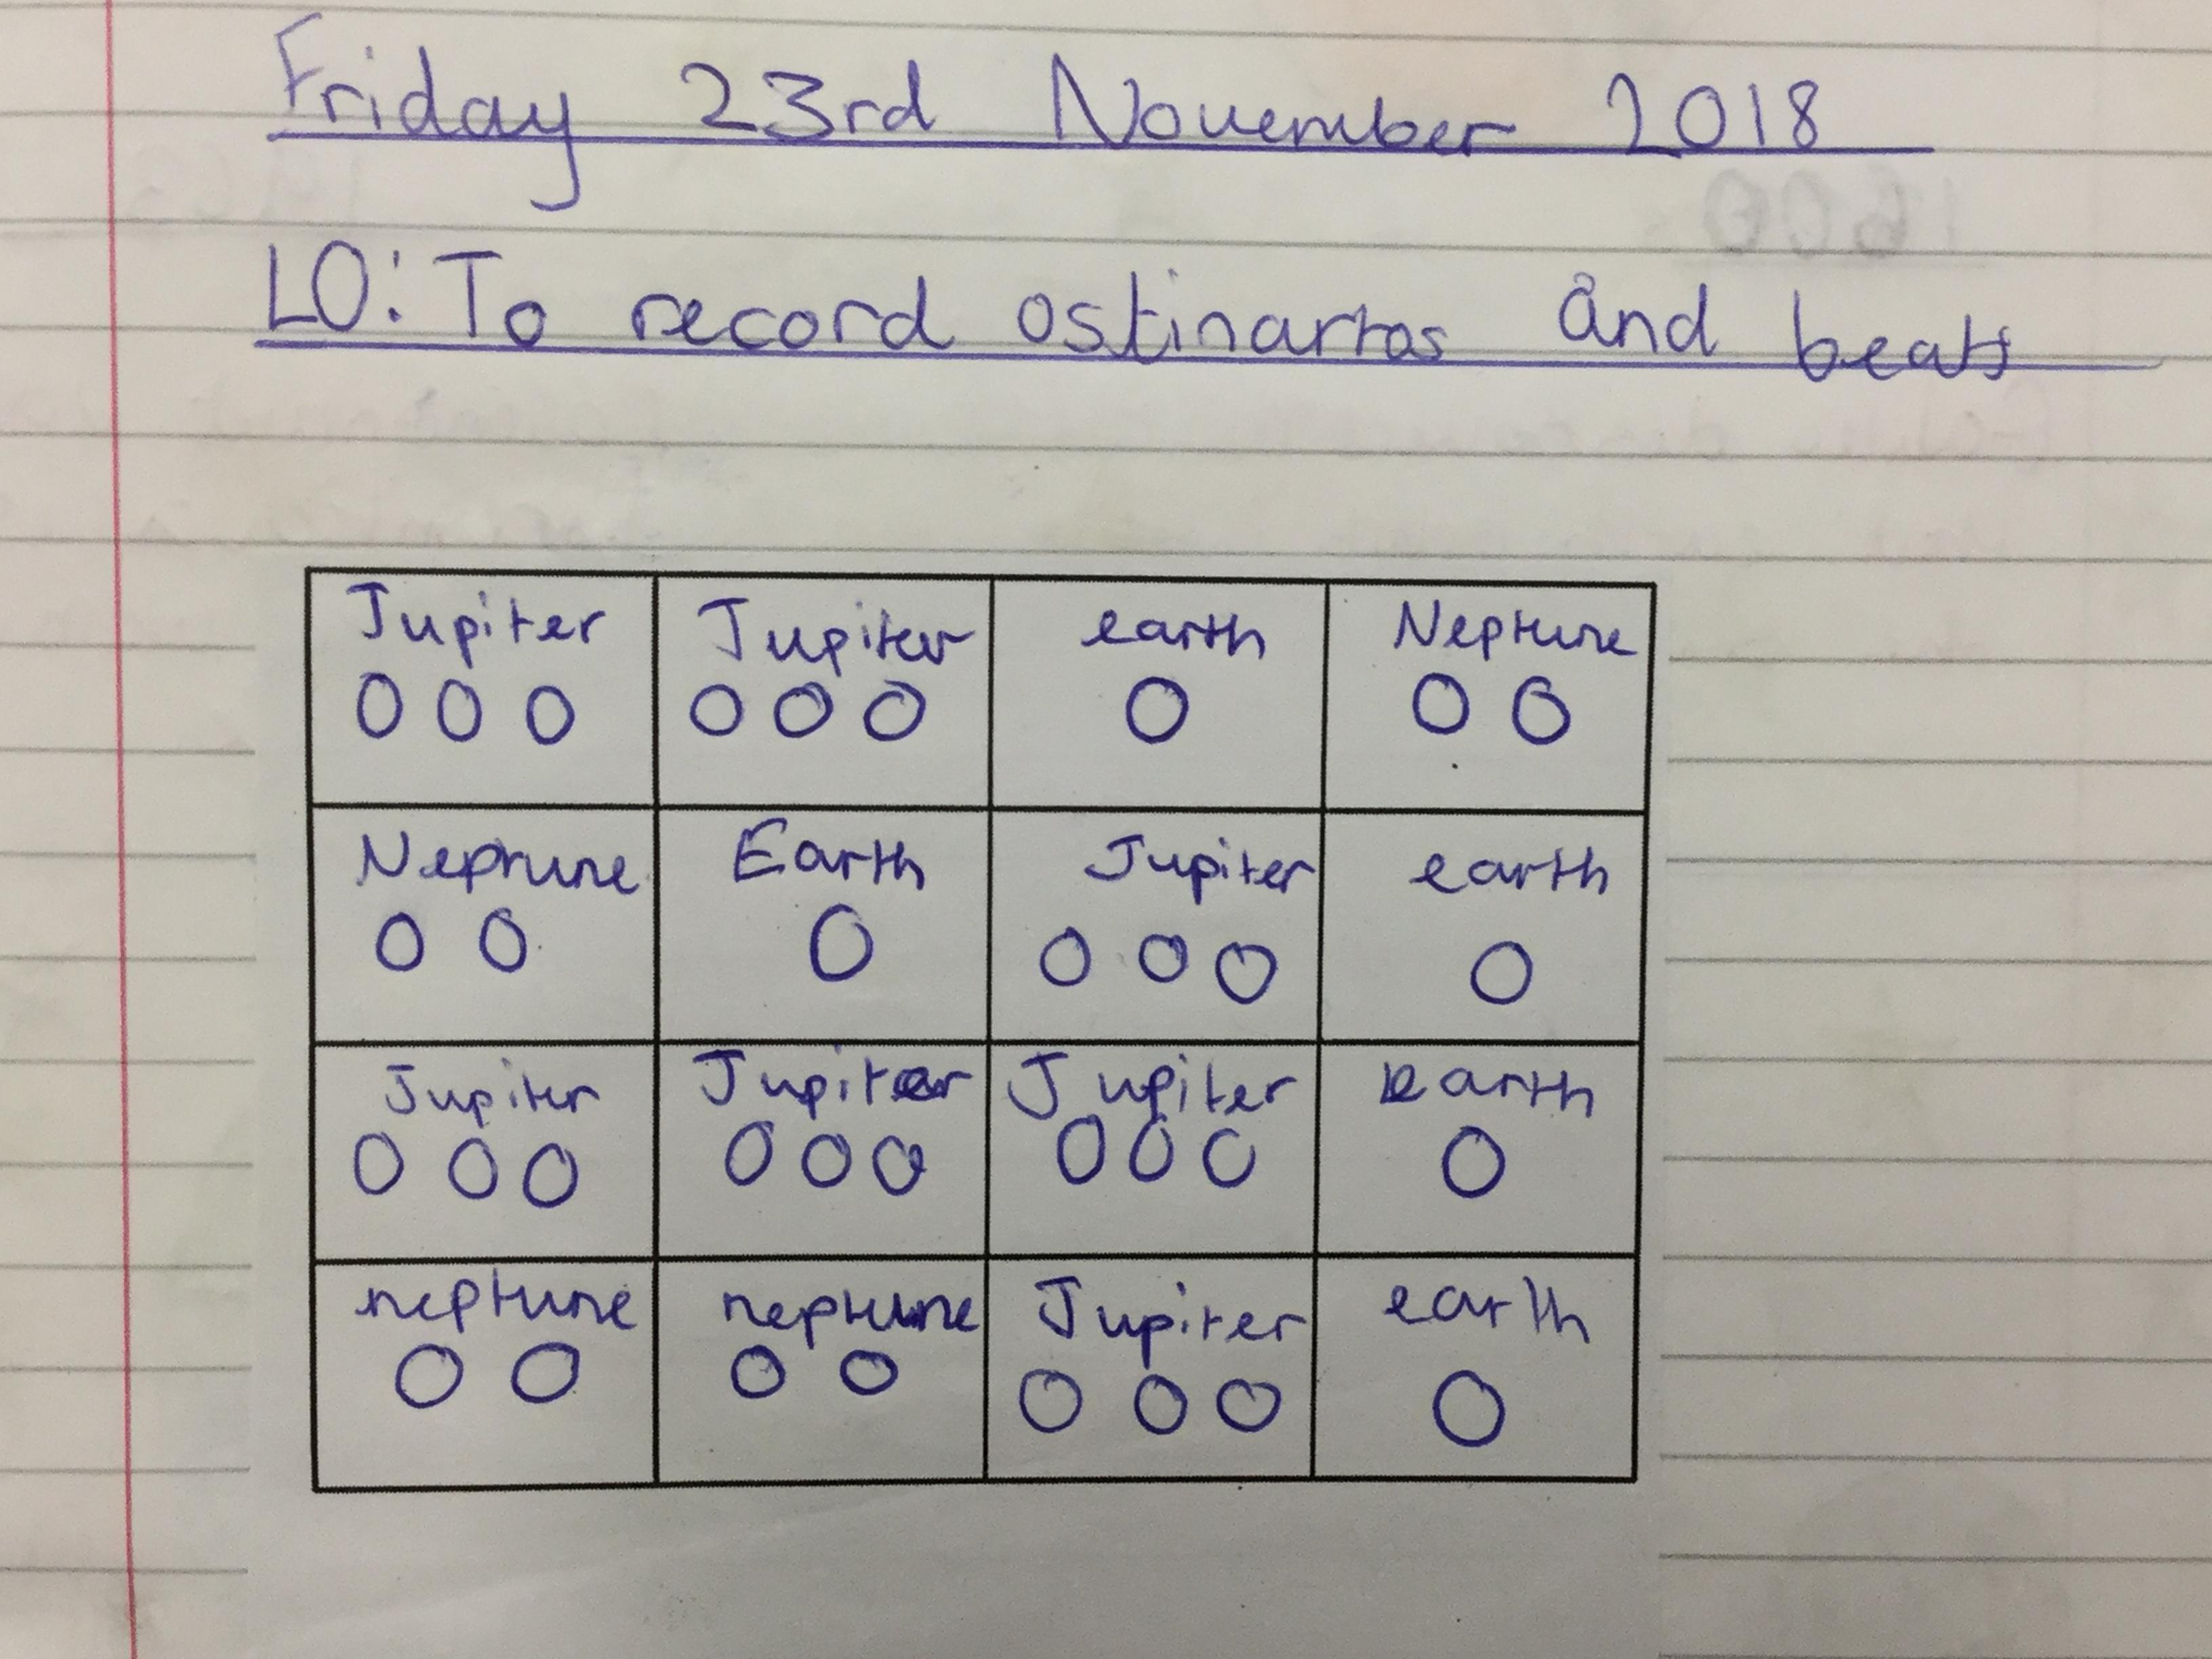 Friday 23rd November 2018
LO: To record ostinartos and beats
Jupiter Jupiter earth Neptune
Neptune Earth Jupiter earth
Jupiter Jupiter Jupiter earth
neptune neptune Jupiter earth